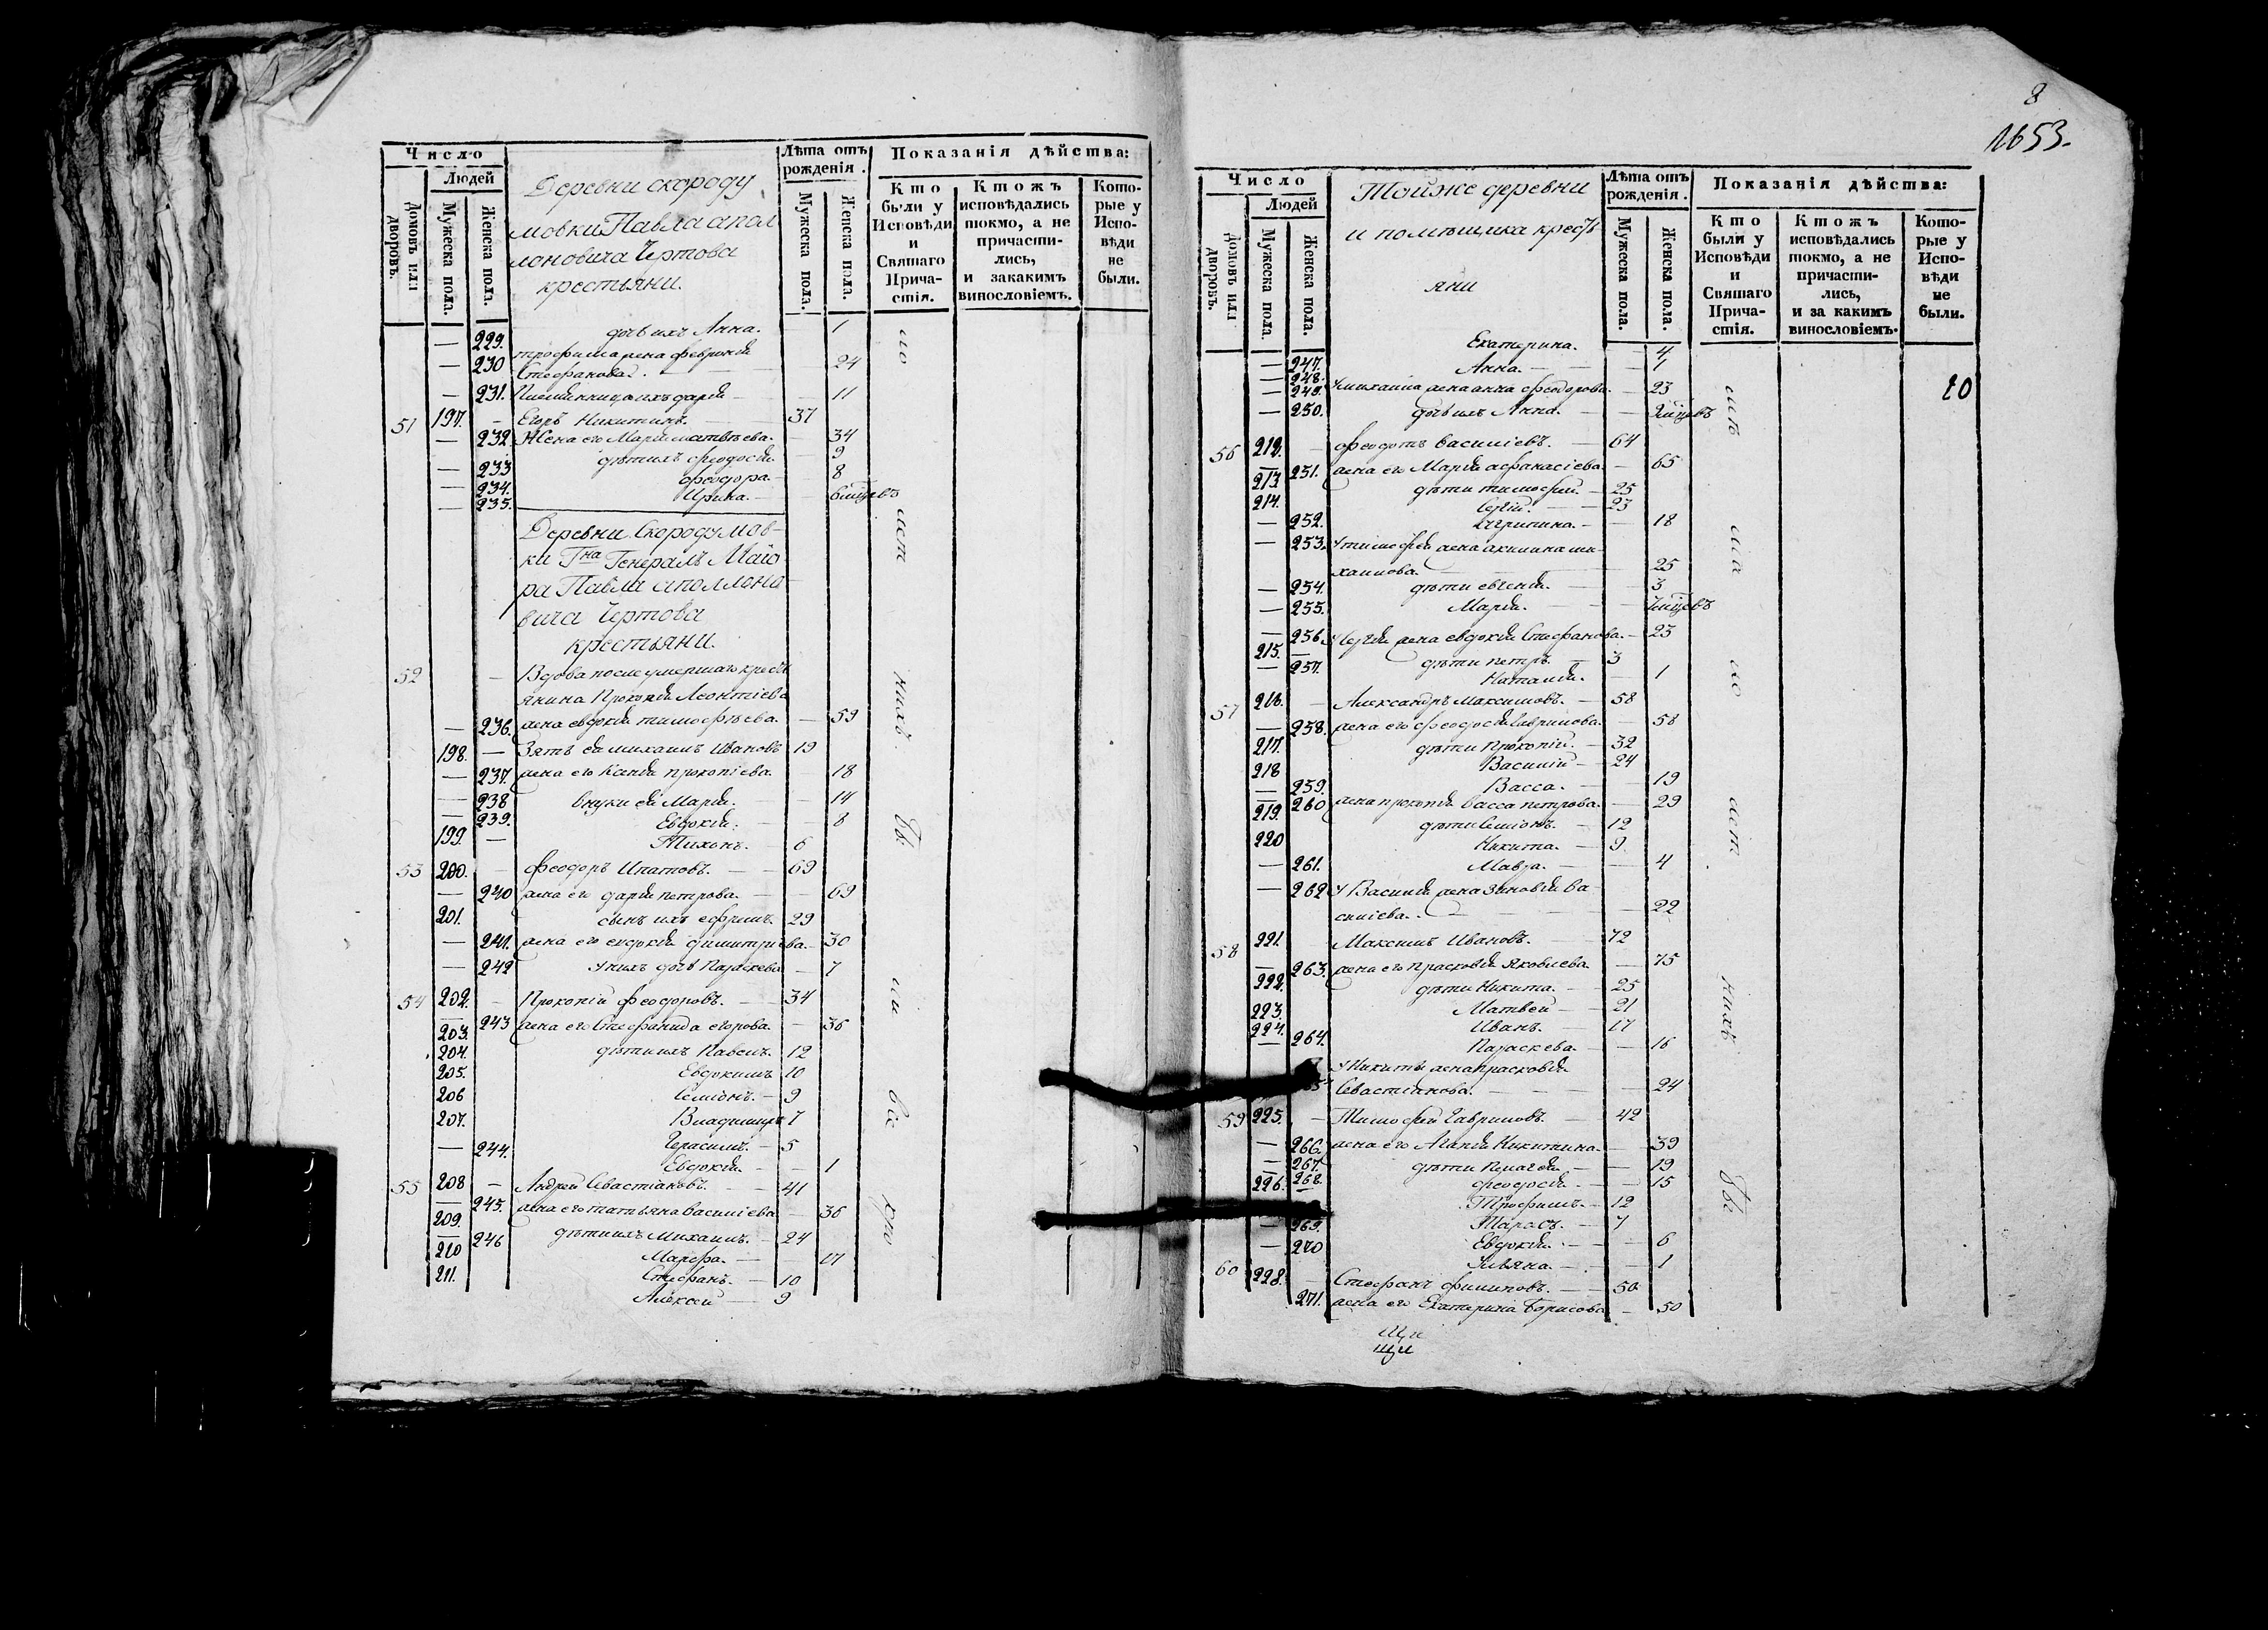 Число
Людей
Домовъ или дворовъ.
Мужеска пола.
Женска пола.
Деревни скороду
мовки Павла апол
лоновича Чертова
крестьяни.
Лѣта отъ рожденія.
Мужеска пола.
Женска пола.
Показанія дѣйства:
Кто были у Исповѣди и Святаго Причастія.
Ктожъ исповѣдались токмо, а не причастились, и закакимъ винословіемъ.
Которые у Исповѣди не были.
— 229. дочь ихъ Анна. 1
— 230 трофима жена феврония
Стефанова. 24
— 231. Племянница ихъ дария 11
51 197. — Егоръ Никитинъ. 37
— 232 Жена его Мария матвѣева. 34
— 233 дѣти ихъ феодосия. 9
— 234. феодора. 8
— 235. Ирина. 6 мцовъ
Деревни Скородумов-
ки Гна Генералъ Маіо
ра Павла аполлоно
вича Чертова
крестьяни.
52 — Вдова после умершаго кресть
янина Прокопія Леонтіева
— 236. жена евдокия тимофѣева. — 59
198. — Зять ея михаилъ Ивановъ 19
— 237. жена его Ксения прокопіева. 18
— 238 внуки ея Мария. — 14
— 239. Евдокия. — 8
199. — Тихонъ. — 6
53 200. — феодоръ Ипатовъ. — 69
— 240 жена ег дария петрова. — 69
201. сынъ ихъ ефремъ. 29
— 241. жена его евдокия димитриева. — 30
— 242 У нихъ дочь Параскева — 7
54 202. — Прокопій феодоровъ. — 34
— 243 жена его Стефанида егорова. — 36
203. дѣти ихъ Павелъ. 12
204. Евдокимъ 10
205. Семіонъ. — 9
206 Владимиръ 7
207. Герасимъ. — 5
— 244. Евдокия. — — 1
55 208 — Андрей Севастіановъ. — 41
— 245. жена его татьяна василиева — 36
209. дѣти ихъ Михаилъ. — 24
— 246 Марфа. — — 17
210 Стефанъ. — 10
211. Алексей — 9
8
1653.
Число
Людей
Домовъ или дворовъ.
Мужеска пола
Женска пола.
Тойже деревни
и помѣщика кресть
яни
Лѣта отъ рожденія.
Мужеска пола.
Женска пола.
Показанія дѣйства:
Кто были у Исповѣди и Святаго Причастія.
Ктожъ исповѣдались токмо, а не причастились, и за какимъ винословіемъ.
Которые у Исповѣди не были.
20
— 247. Екатерина. — 4
— 248. Анна. — 1
— 249. Умихаила жена анна феодорова. — 23
— 250. дочь ихъ Анна. —
56 212. — феодотъ василіевъ. — 64
— 251. жена его Мария афанасіева. — 65
213 дѣти тимофей. — 25
214. Сергій. — 23
— 252. — 18
— 253. Утимофея жена акилина ми-
хаилова. 25
— 254. дѣти евгения. — 3
— 255. Мария.
— 256. У Сергия жена евдокия Стефанова. — 23
215. — дѣти петръ. 3
— 257. Наталия. — 1
57 216. — Александръ максимовъ. — 58
— 258. жена его феодосия Гаврилова. — 58
217. дѣти Прокопій. — 32
218 Василий — 24
— 259. Васса. — 19
— 260 жена прокопия васса петрова. — 29
219. дѣти Семіонъ. — 12
220 Никита. — 9
— 261. Мавра. — 4
— 262 У Василия жена зиновия ва-
силіева. — 22
58 221. Максимъ Ивановъ. 72
— 263. жена его прасковия Яковлева. — 75
222. дѣти Никита. — 25
223. Матвей — 21
224. Иванъ. — 17
— 264. Параскева. — — 16
У Никиты жена прасковия
Севастианова. — — 24
59 225. — Тимофей Гавриловъ. — 42
— 266. жена его Агапия Никитина. — 39
— 267. дѣти Пелагея. — 19
— 268. феодосия. — 15
226. Трофимъ. — 12
Тарасъ. — 7
— 269. Евдокия. — 6
— 270 Ульяна. — 1
60 228. — Стефанъ филиповъ. — 50
271. жена его Екатерина борисова — 50